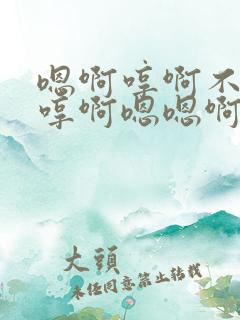 嗯啊哼啊不
哼啊嗯嗯啊
大頭
未经同意禁止转载